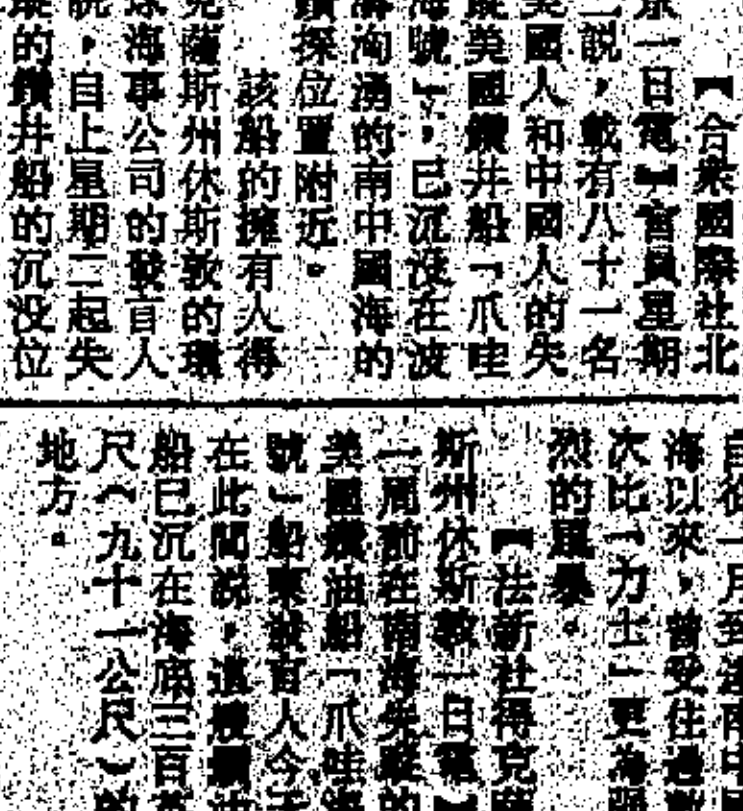 【合衆國際社北
京一日電】官員星期
二説，載有八十一名
美國人和中國人的失
蹤美國鑽井船「爪哇
海號」，已沉没在波
濤洶湧的南中國海的
鑽探位置附近。
該船的擁有人得
克薩斯州休斯敦的環
球海事公司的發言人
説，自上星期二起失
蹤的鑽井船的沉没位
自從一月到達南中國
海以來，曾受住過數
次比「力士」更為強
烈的風暴。
【法新社得克薩
斯州休斯敦一日電】
二周前在南海失蹤的
美國鑽油船「爪哇海
號」船東發言人今天
在此間說，這艘鑽油
船已沉在海底三百英
尺（九十一公尺）的
地方。